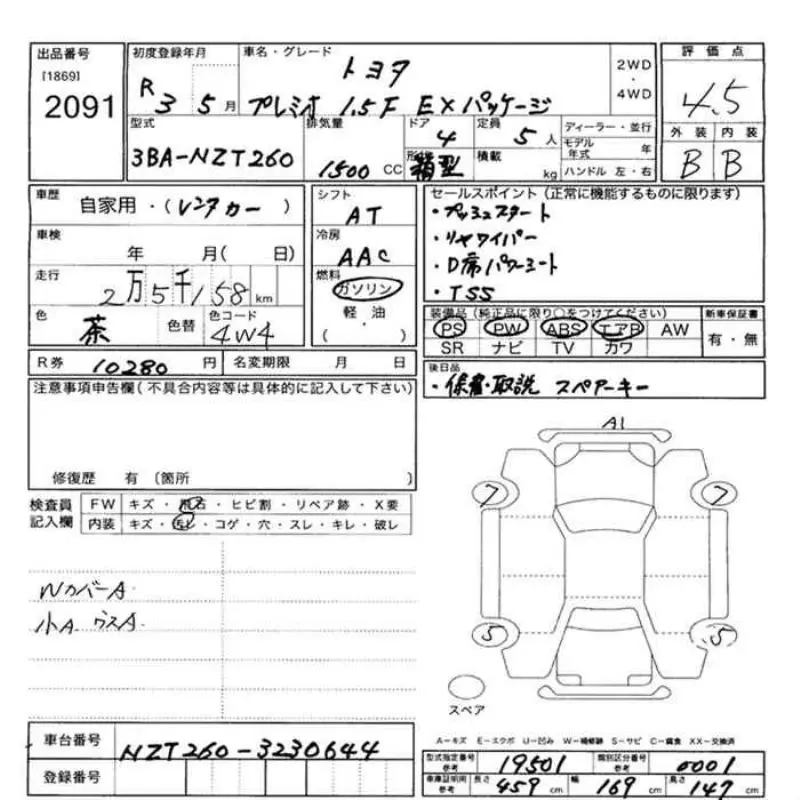 出品番号 初度登録年月 車名・グレード 評価点
[1869] トヨタ 2WD
2091 R3 5月 プレミオ 1.5F EXパッケージ ・ 4WD 4.5
型式 排気量 ドア 定員 ディーラー・並行 外装 内装
3BA-NZT260 1500 CC 4 5人 モデル年式 年 B B
形状 箱型 積載 kg ハンドル 左・右
車歴 自家用・(レンタカー) シフト AT セールスポイント(正常に機能するものに限ります)
・プッシュスタート
車検 年 月( 日) 冷房 AAC ・リヤワイパー
走行 2万5千158km 燃料 ガソリン ・D席パワーシート
軽油 ・TSS
色 茶 色替 色コード 4W4 ・ ( ) 装備品(純正品に限り○をつけてください) 新車保証書
PS PW ABS エアB AW 有・無
SR ナビ TV カワ
R券 10280円 名変期限 月 日 後日品
・保書・取説 スペアーキー
注意事項申告欄(不具合内容等は具体的に記入して下さい)
修復歴 有(箇所 )
A1
7 7
検査員記入欄 FW キズ・飛石・ヒビ割・リペア跡・X要
内装 キズ・汚れ・コゲ・穴・スレ・キレ・破レ
WカバーA
小A ウスA
5 5
スペア
A-キズ E-エクボ U-凹み W-補修跡 S-サビ C-腐食 XX-交換済
車台番号 NZT260-3230644
型式指定番号参考 19501 類別区分番号参考 0001
登録番号
車庫証明用参考 長さ 459cm 幅 169cm 高さ 147cm